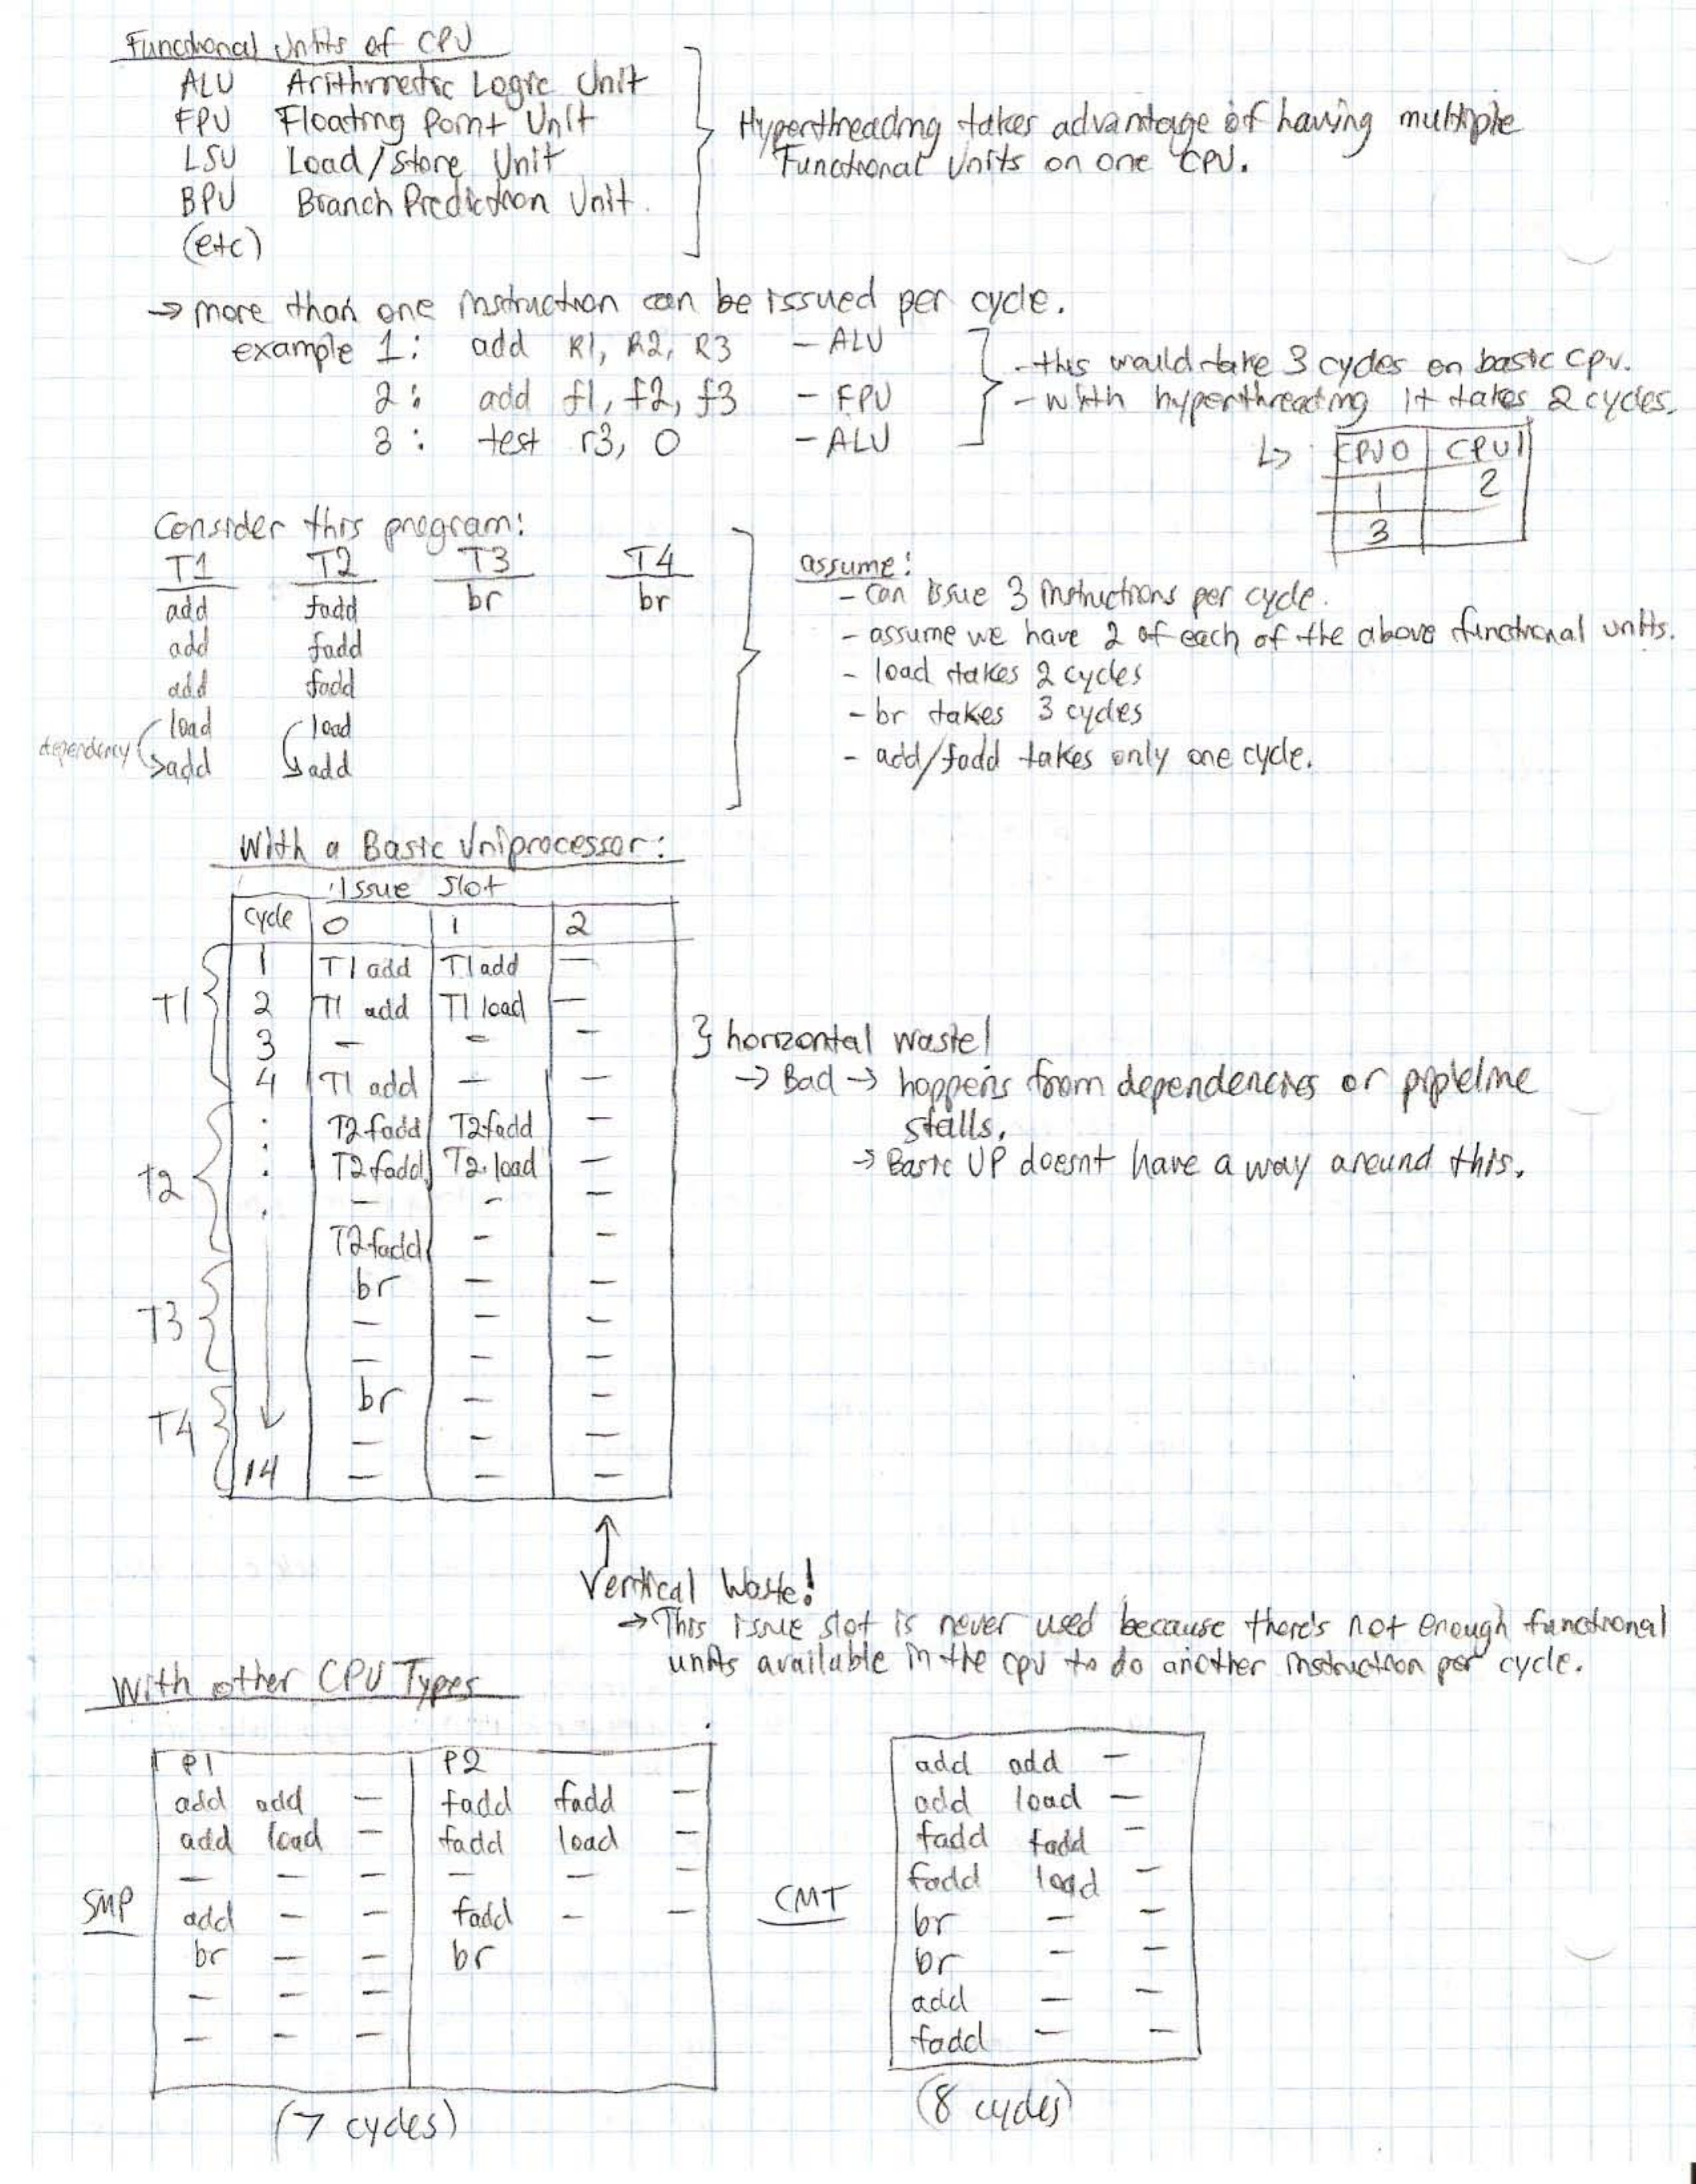 Functional Units of CPU
ALU Arithmetic Logic Unit
FPU Floating Point Unit
LSU Load/Store Unit
BPU Branch Prediction Unit.
(etc)
Hyperthreading takes advantage of having multiple
Functional Units on one CPU.
→ more than one instruction can be issued per cycle.
example 1: add R1, R2, R3 - ALU
2: add f1, f2, f3 - FPU
3: test r3, 0 - ALU
- this would take 3 cycles on basic cpu.
- with hyperthreading it takes 2 cycles.
↳ CPU0 CPU1
1 2
3
Consider this program:
T1 T2 T3 T4
add fadd br br
add fadd
add fadd
load load
dependency add add
assume:
- can issue 3 instructions per cycle.
- assume we have 2 of each of the above functional units.
- load takes 2 cycles
- br takes 3 cycles
- add/fadd takes only one cycle.
With a Basic Uniprocessor:
Issue Slot
cycle 0 1 2
T1
1 T1 add T1 add —
2 T1 add T1 load —
3 — — —
4 T1 add — —
T2
: T2 fadd T2 fadd —
: T2 fadd T2 load —
. — — —
T2 fadd — —
T3
br — —
— — —
— — —
T4
br — —
— — —
14 — — —
} horizontal waste!
→ Bad → happens from dependencies or pipeline
stalls.
→ Basic UP doesnt have a way around this.
↑
Vertical Waste!
→ This issue slot is never used because there's not enough functional
units available in the cpu to do another instruction per cycle.
With other CPU Types
SMP
P1 P2
add add — fadd fadd —
add load — fadd load —
— — — — — —
add — — fadd — —
br — — br
— — —
— — —
(7 cycles)
CMT
add add —
add load —
fadd fadd —
fadd load —
br — —
br — —
add — —
fadd — —
(8 cycles)